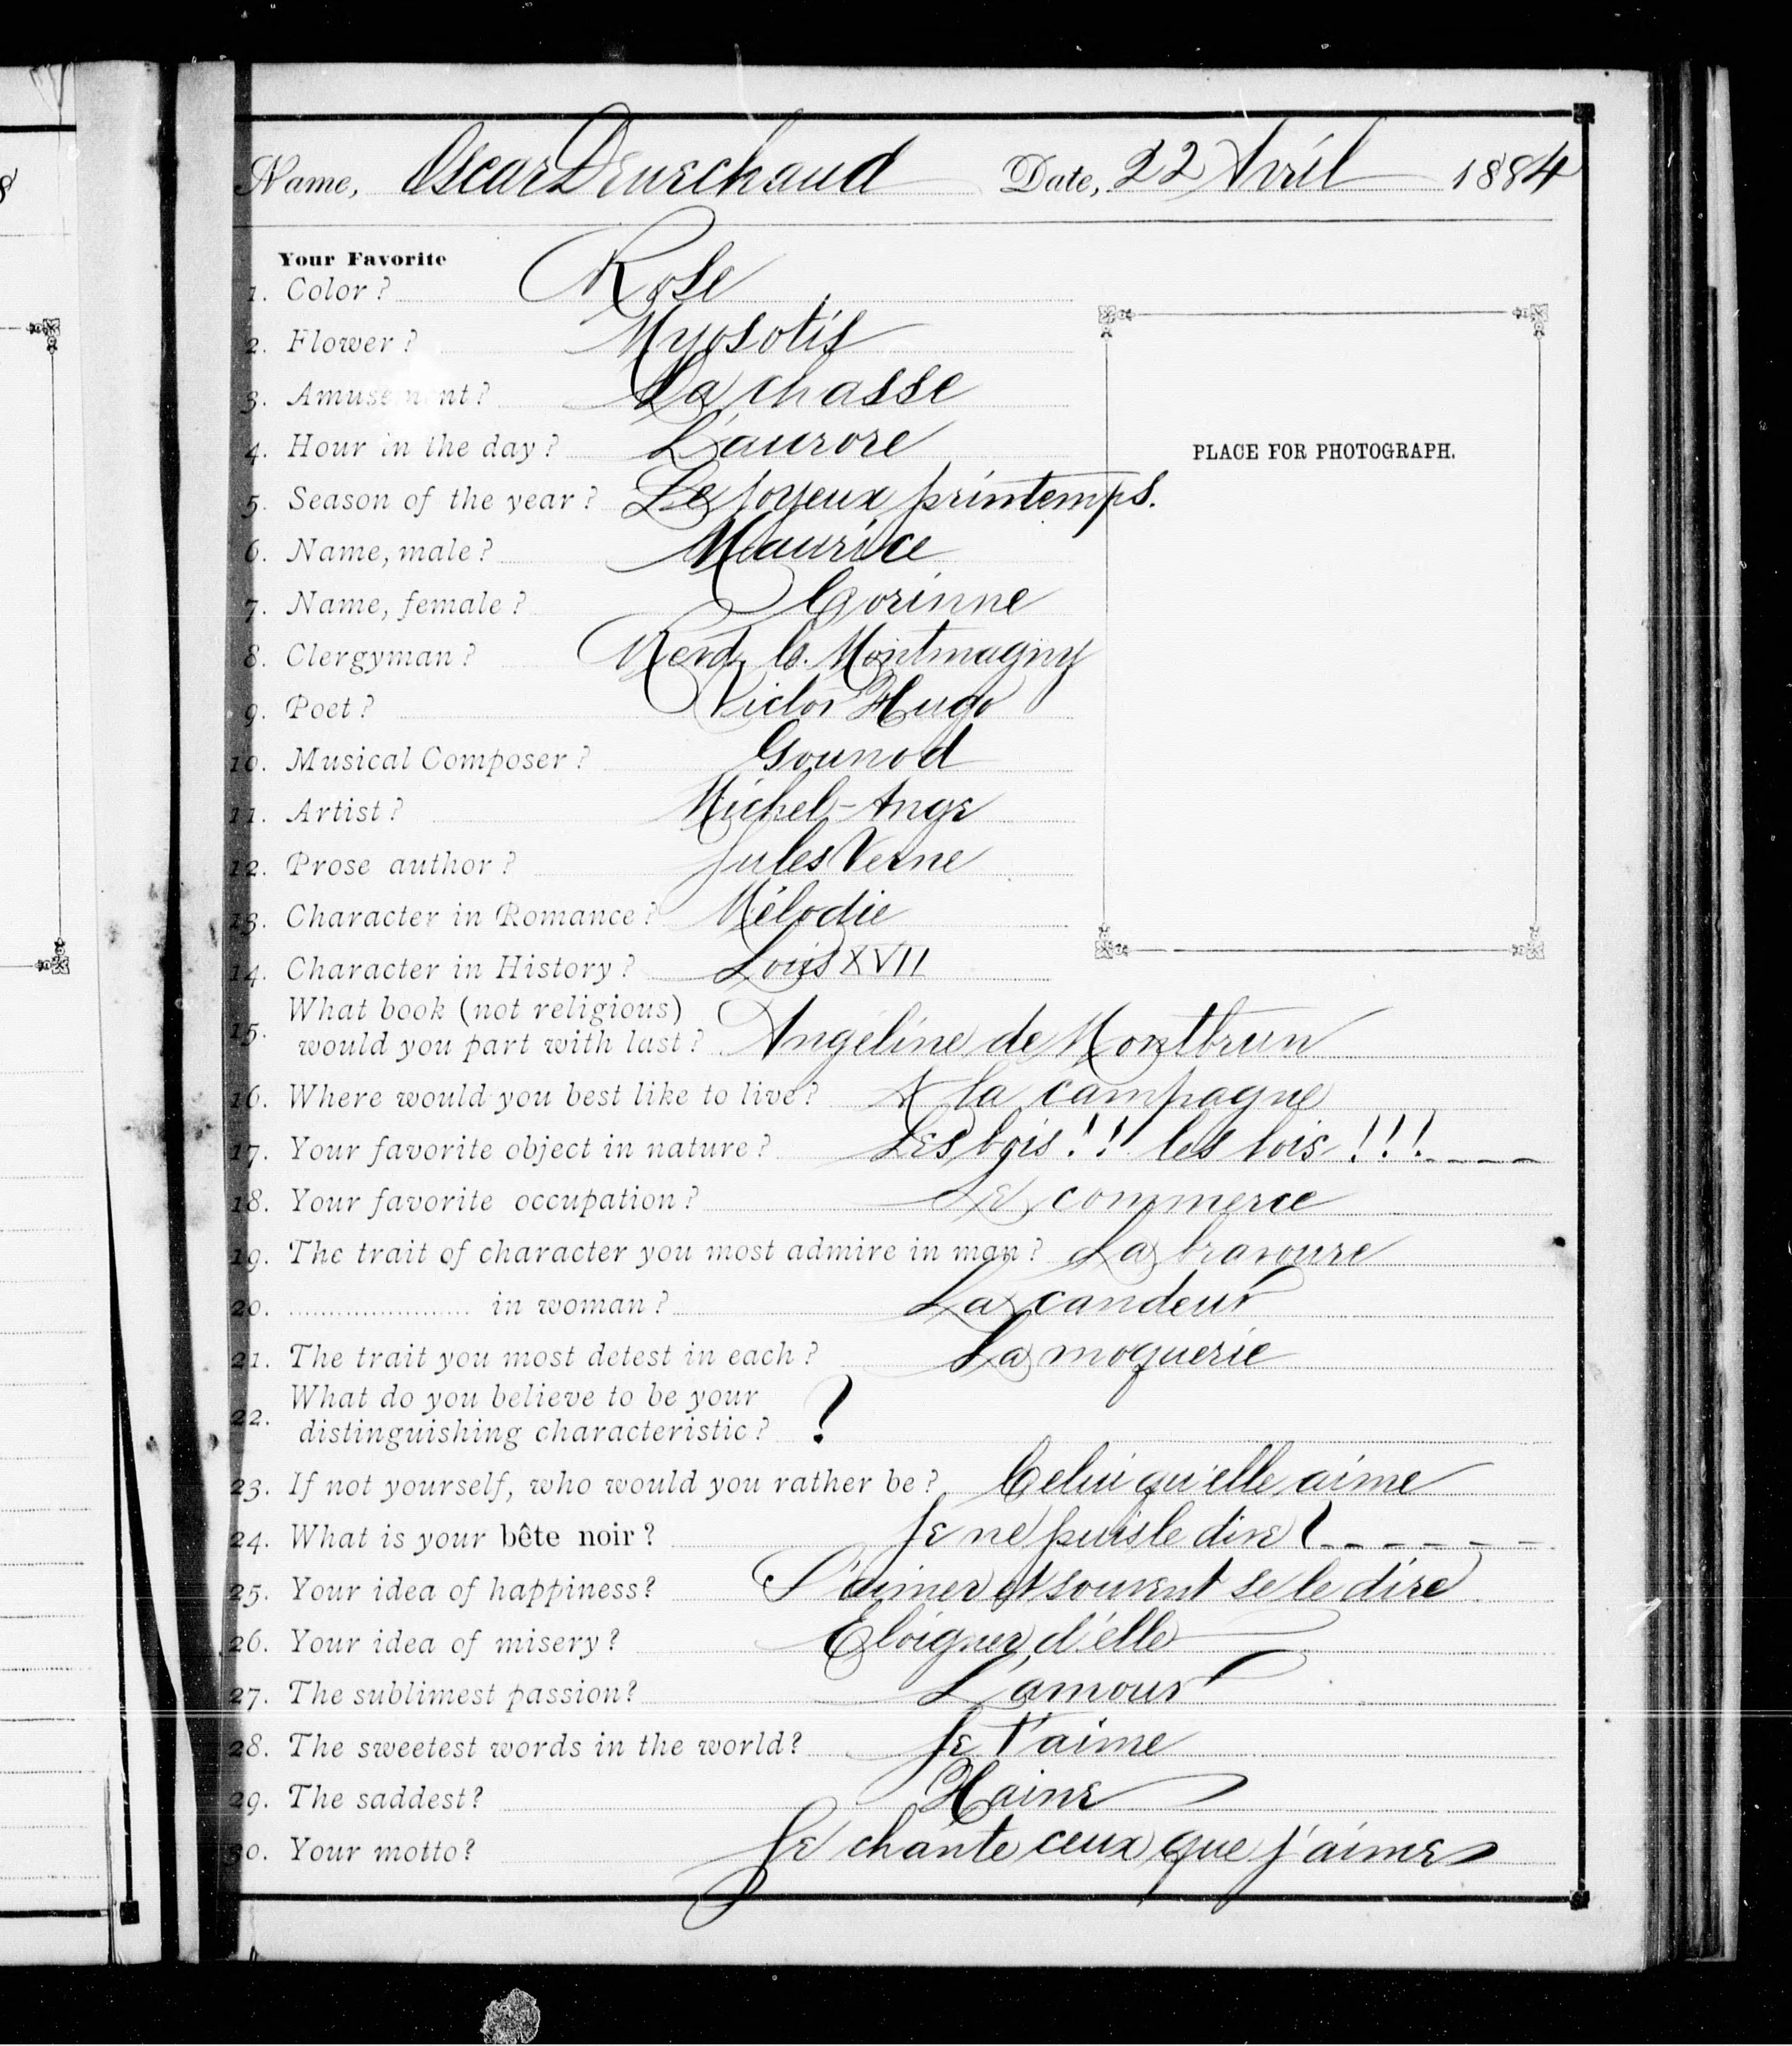 Name, Oscar Date, 22 Avril 1884
Your Favorite
1. Color? Rose
2. Flower? Myosotis
3. Amusement? La chasse
4. Hour in the day? L'aurore
5. Season of the year? Le joyeux printemps.
6. Name, male? Maurice
7. Name, female? Corinne
8. Clergyman? Revd. C. Montmagny
9. Poet? Victor Hugo
10. Musical Composer? Gounod
11. Artist? Michel-Ange
12. Prose author? Jules Verne
13. Character in Romance? Mélodie
14. Character in History? Louis XVII
PLACE FOR PHOTOGRAPH.
What book (not religious)
15. would you part with last? Angéline de Montbrun
16. Where would you best like to live? A la campagne
17. Your favorite object in nature? Les bois!! les bois!!!
18. Your favorite occupation? Le commerce
19. The trait of character you most admire in man? La bravoure
20. .................... in woman? La candeur
21. The trait you most detest in each? La moquerie
What do you believe to be your
22. distinguishing characteristic? ?
23. If not yourself, who would you rather be? Celui qu'elle aime
24. What is your bête noir? Je ne puis le dire!
25. Your idea of happiness? S'aimer et souvent se le dire
26. Your idea of misery? Eloigner d'elle
27. The sublimest passion? L'amour
28. The sweetest words in the world? Je t'aime
29. The saddest? Haine
30. Your motto? Je chante ceux que j'aime